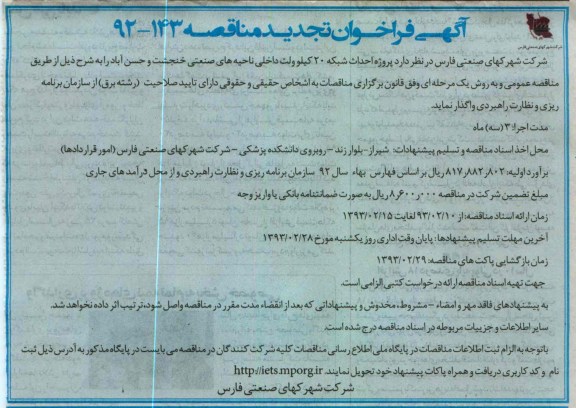 آگهی فراخوان تجدید مناقصه ۱۴۳-۹۲
شرکت شهرکهای صنعتی فارس در نظر دارد پروژه احداث شبکه ۲۰ کیلو ولت داخلی ناحیه های صنعتی خنجشت و حسن آباد را به شرح ذیل از طریق
مناقصه عمومی و به روش یک مرحله ای وفق قانون برگزاری مناقصات به اشخاص حقیقی و حقوقی دارای تایید صلاحیت (رشته برق) از سازمان برنامه
ریزی و نظارت راهبردی واگذار نماید.
مدت اجرا: ۳ (سه) ماه
محل اخذ اسناد مناقصه و تسلیم پیشنهادات: شیراز-بلوار زند-روبروی دانشکده پزشکی-شرکت شهرکهای صنعتی فارس (امور قراردادها)
برآورد اولیه: ۸۱۷٫۸۸۲٫۸۰۲ ریال بر اساس فهارس بهاء سال ۹۲ سازمان برنامه ریزی و نظارت راهبردی و از محل درآمد های جاری
مبلغ تضمین شرکت در مناقصه ۸٫۶۰۰٫۰۰۰ ریال به صورت ضمانتنامه بانکی یا واریز وجه
زمان ارائه اسناد مناقصه: از ۹۳/۰۲/۱۰ لغایت ۱۳۹۳/۰۲/۱۵
آخرین مهلت تسلیم پیشنهادها: پایان وقت اداری روز یکشنبه مورخ ۱۳۹۳/۰۲/۲۸
زمان بازگشایی پاکت های مناقصه: ۱۳۹۳/۰۲/۲۹
جهت تهیه اسناد مناقصه ارائه درخواست کتبی الزامی است.
به پیشنهادهای فاقد مهر و امضاء - مشروط، مخدوش و پیشنهاداتی که بعد از انقضاء مدت مقرر در مناقصه واصل شود، ترتیب اثر داده نخواهد شد.
سایر اطلاعات و جزییات مربوطه در اسناد مناقصه درج شده است.
با توجه به الزام ثبت اطلاعات مناقصات در پایگاه ملی اطلاع رسانی مناقصات کلیه شرکت کنندگان در مناقصه می بایست در پایگاه مذکور به آدرس ذیل ثبت
نام و کد کاربری دریافت و همراه پاکات پیشنهاد خود تحویل نمایند. http://iets.mporg.ir
شرکت شهرکهای صنعتی فارس